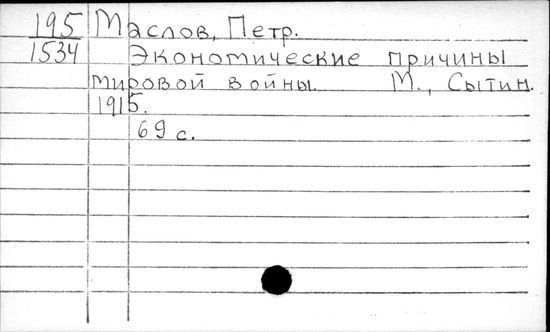 195 Маслов, Петр.
1534 Экономические причины
мировой войны. М., Сытин.
1915.
69 с.